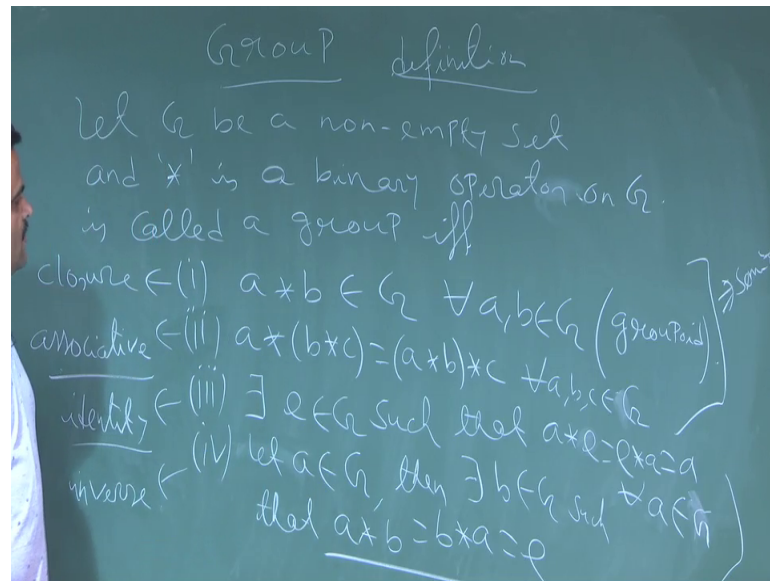 Group definition
Let G be a non-empty set
and '*' is a binary operator on G.
is called a group iff
closure ← (i) a * b ∈ G ∀ a, b ∈ G (groupoid) ⇒
associative ← (ii) a * (b * c) = (a * b) * c ∀ a, b, c ∈ G
identity ← (iii) ∃ e ∈ G such that a * e = e * a = a
∀ a ∈ G
inverse ← (iv) let a ∈ G, then ∃ b ∈ G such
that a * b = b * a = e